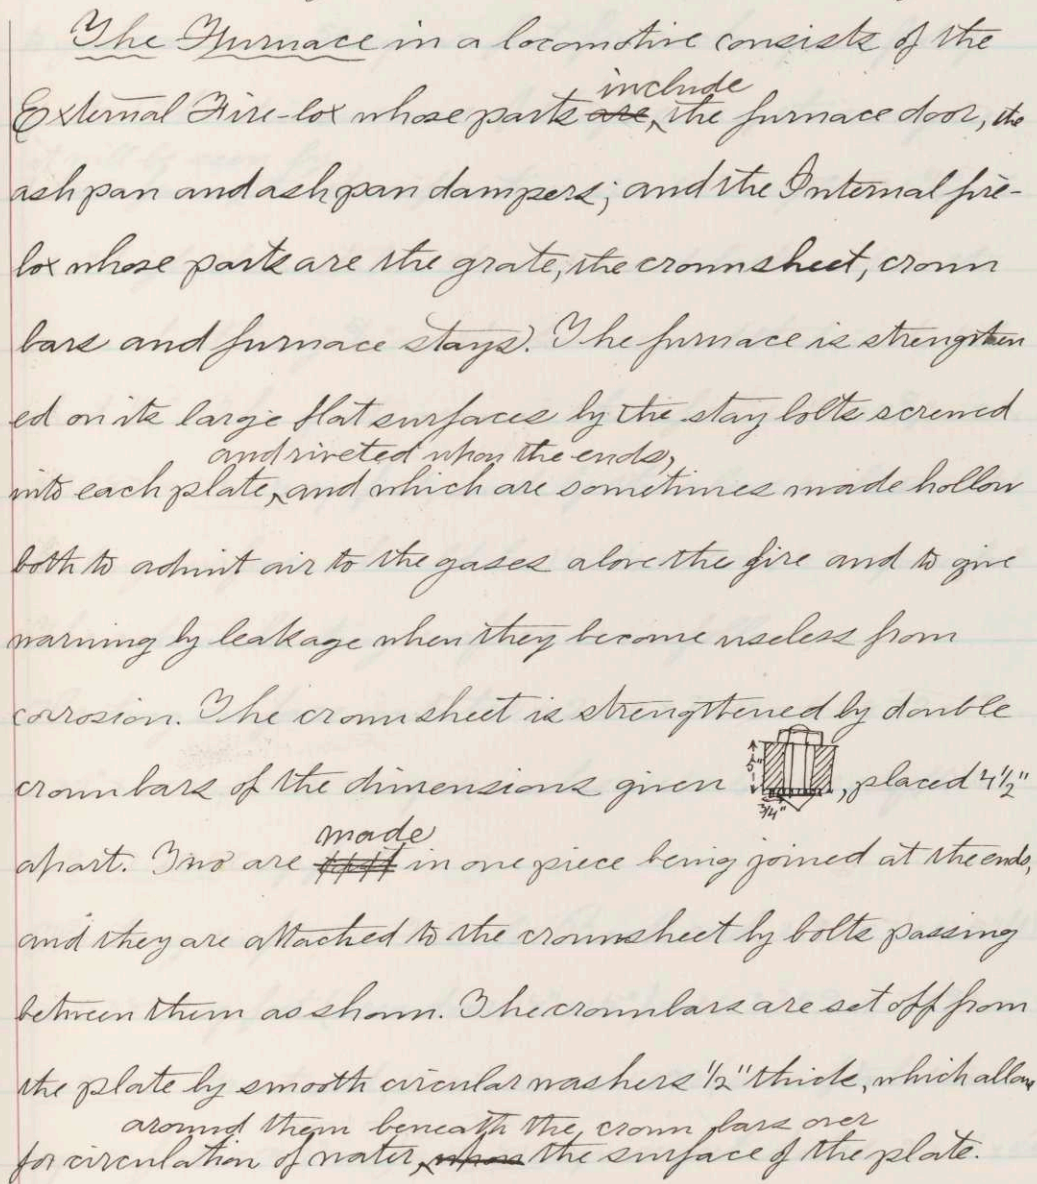 The Furnace in a locomotive consists of the
include
External Fire-box whose parts are, the furnace door, the
ash pan and ash pan dampers; and the Internal fire-
box whose parts are the grate, the crownsheet, crown
bars and furnace stays. The furnace is strengthen
ed on its large flat surfaces by the stay bolts screwed
and riveted upon the ends,
into each plate, and which are sometimes made hollow
both to admit air to the gases above the fire and to give
warning by leakage when they become useless from
corrosion. The crown sheet is strengthened by double
crown bars of the dimensions given 5" 3/4", placed 4 1/2"
made
apart. Two are in one piece being joined at the ends,
and they are attached to the crownsheet by bolts passing
between them as shown. The crownbars are set off from
the plate by smooth circular washers 1/2" thick, which allows
around them beneath the crown bars over
for circulation of water, upon the surface of the plate.